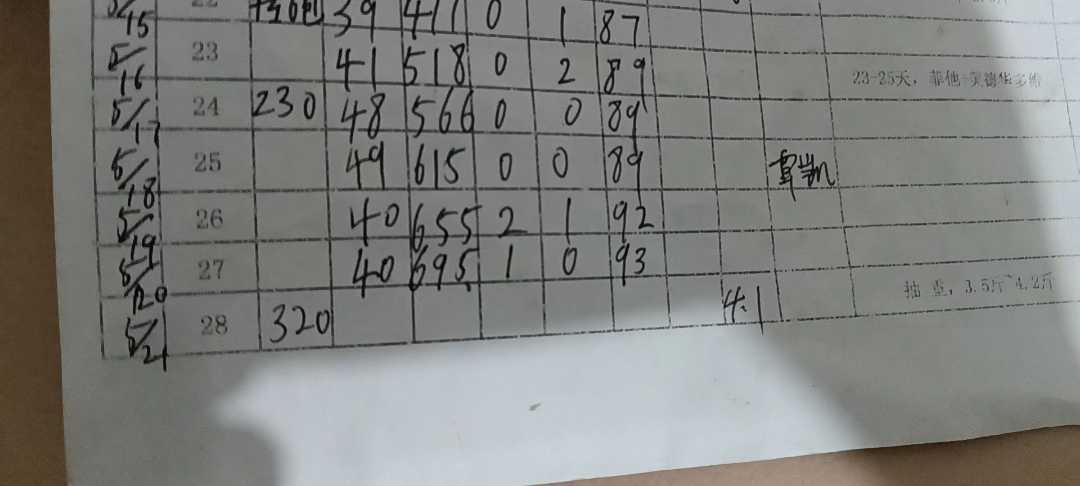 5/15 22 39 477 0 1 87
5/16 23 41 518 0 2 89 23-25天，
5/17 24 230 48 566 0 0 89
5/18 25 49 615 0 0 89
5/19 26 40 655 2 1 92
5/20 27 40 695 1 0 93
5/21 28 320 4.1 抽重，3.5斤 4.2斤